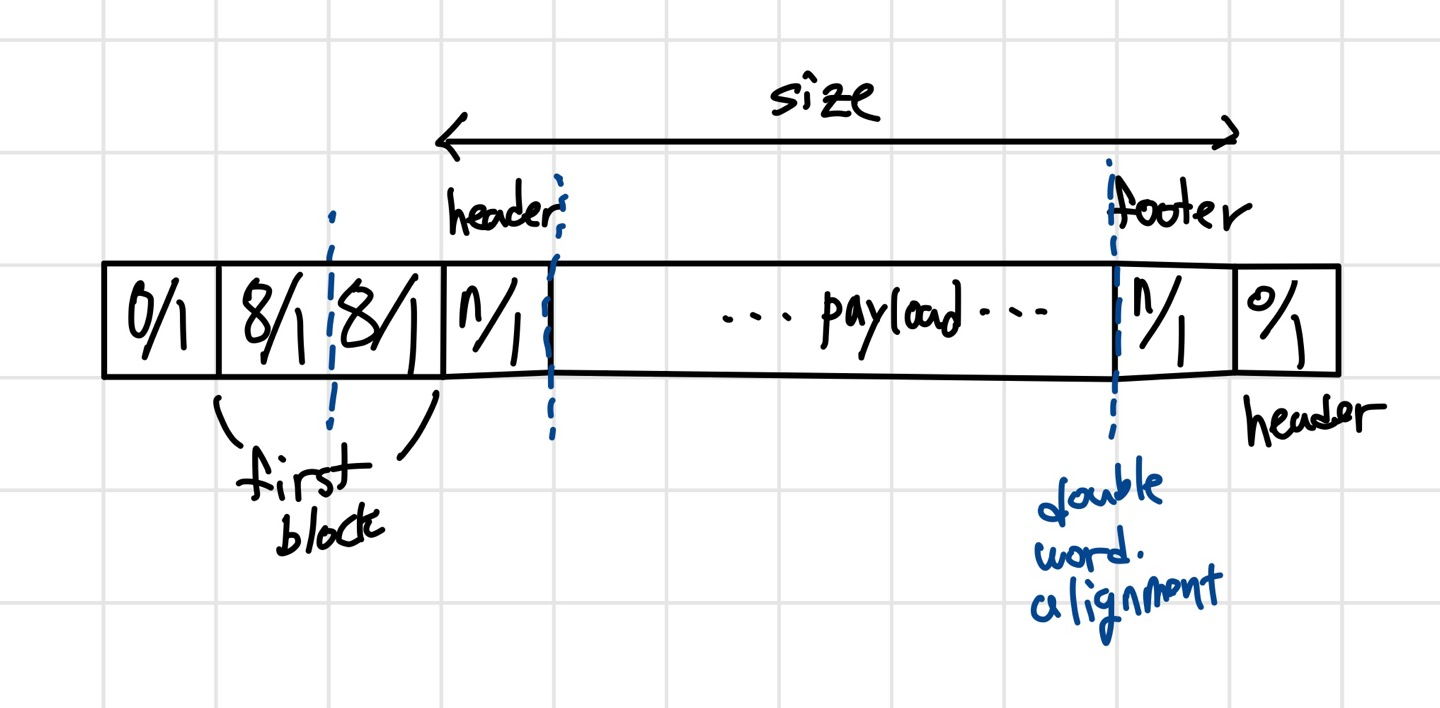 size
header
footer
0/1 8/1 8/1 n/1 ... payload ... n/1 0/1
header
first
block
double
word.
alignment